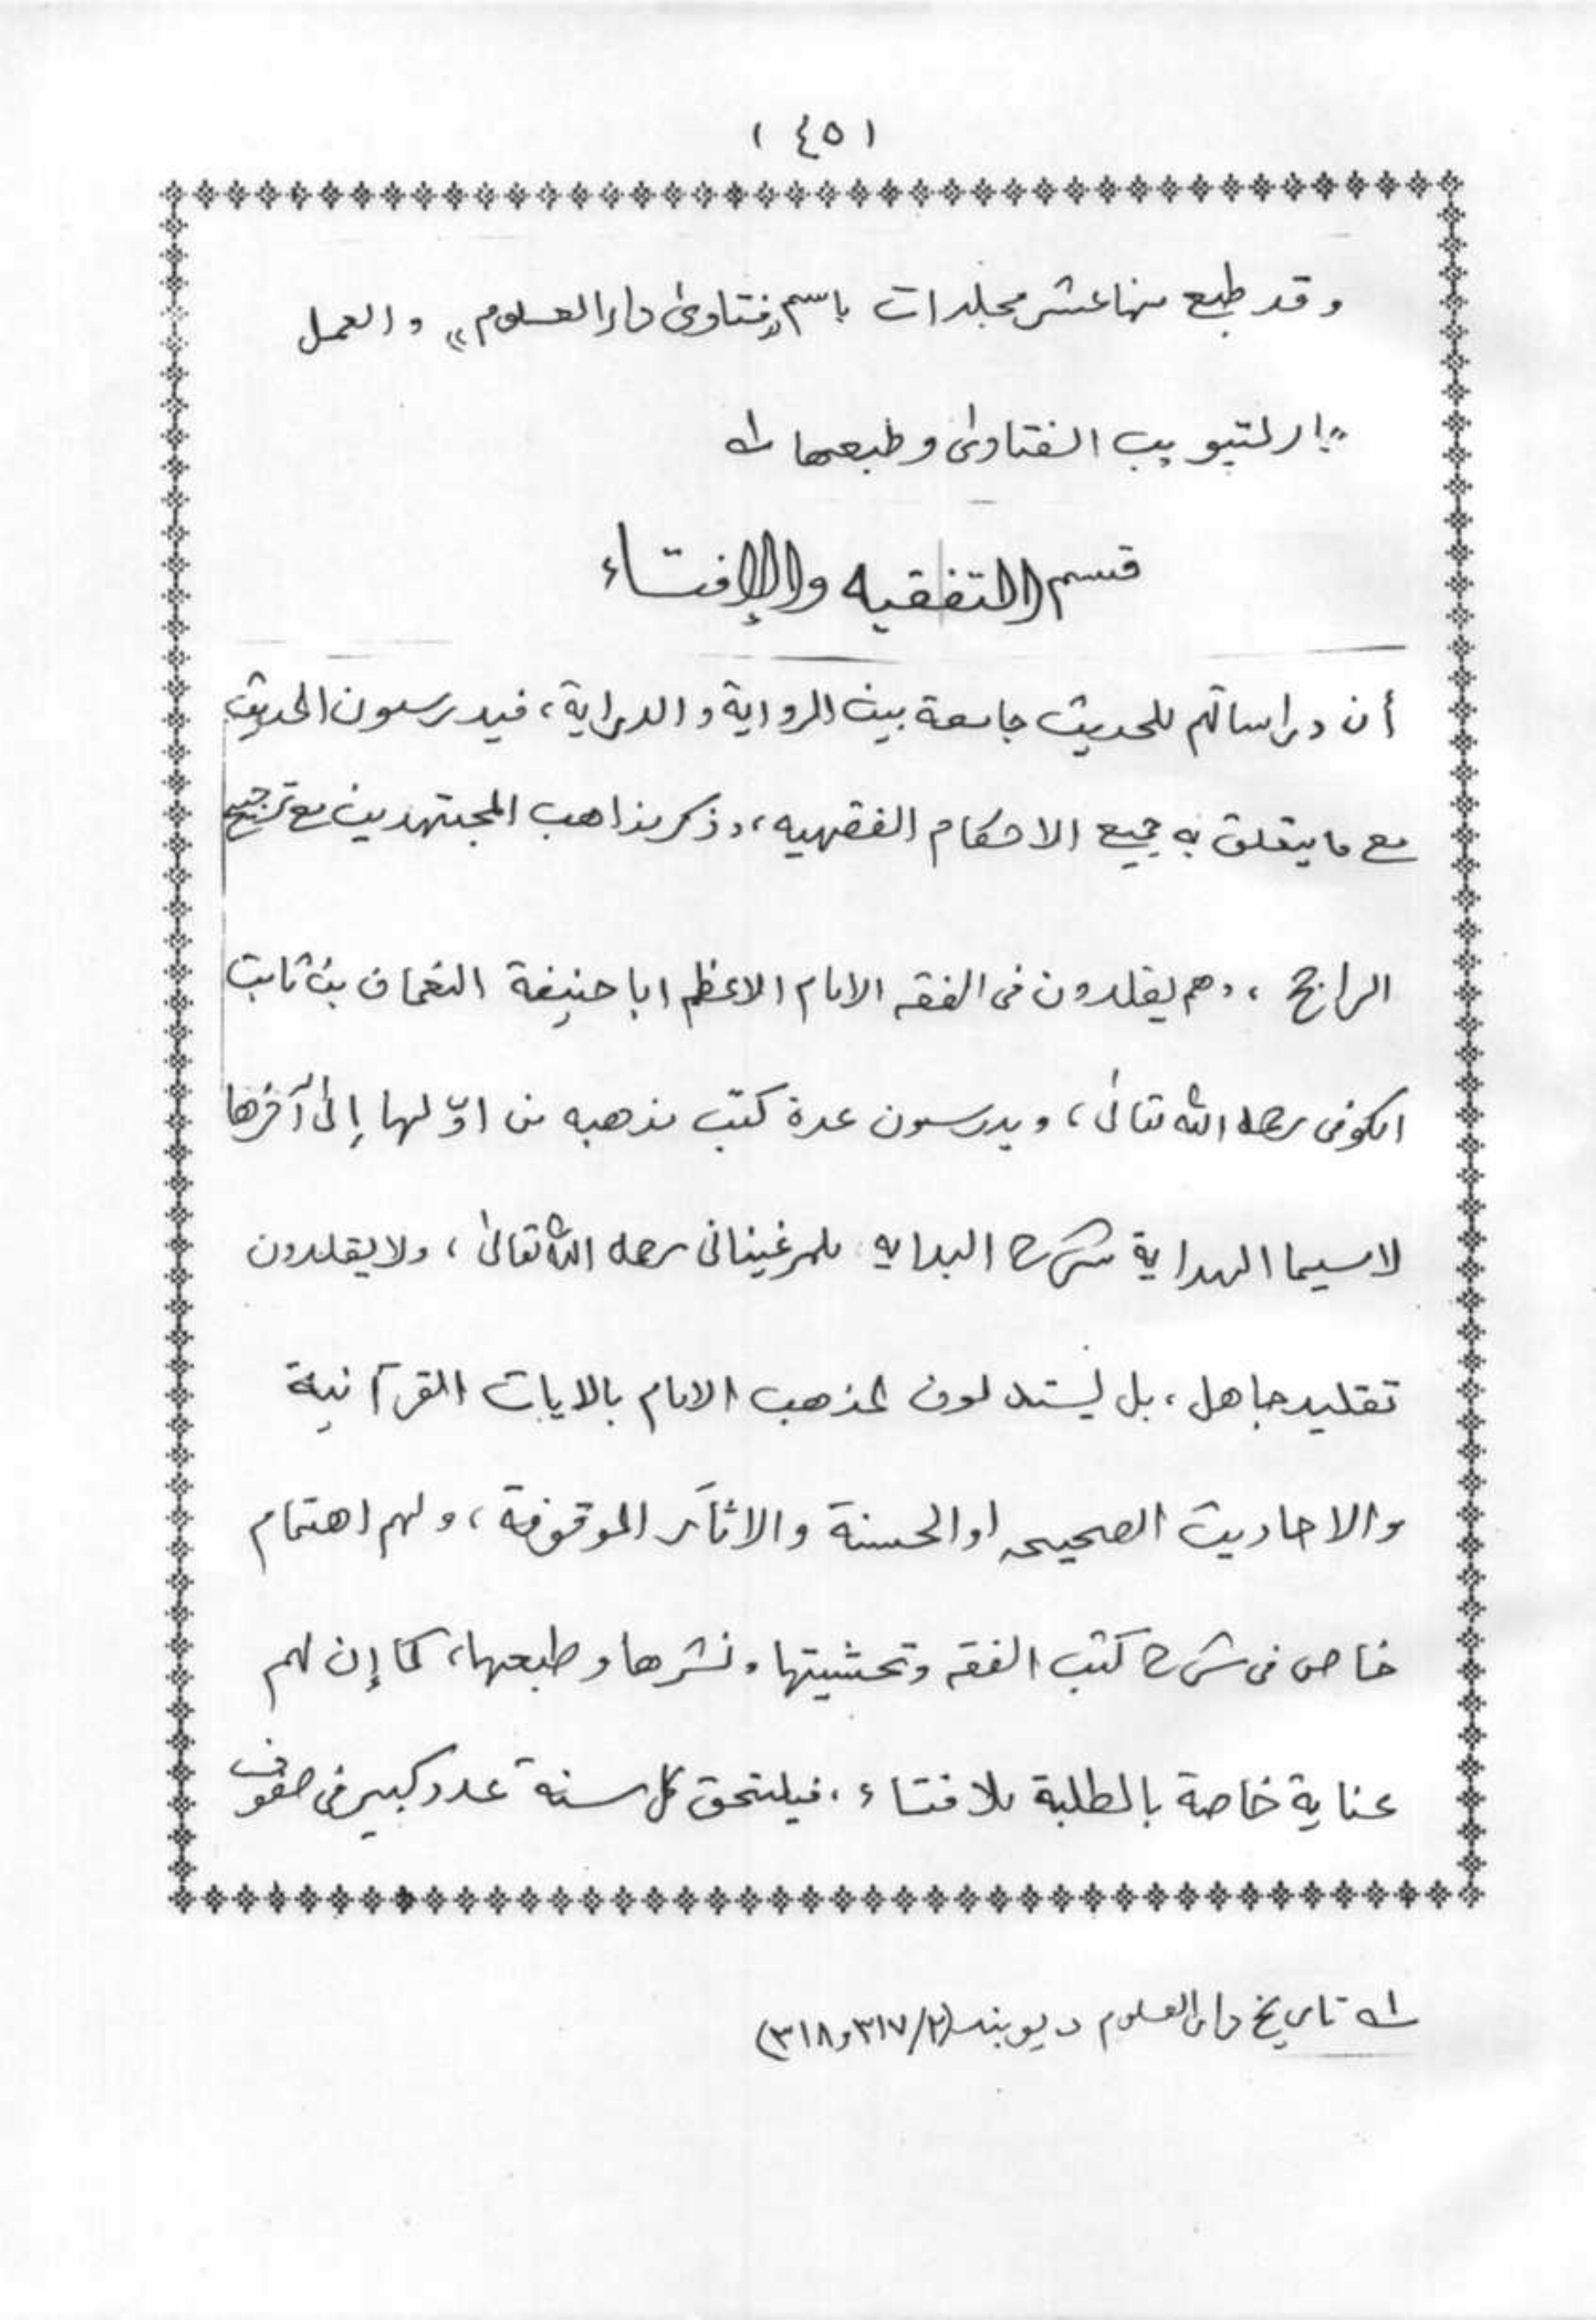 (٤٥)
وقد طبع منها عشر مجلدات باسم «فتاوىٰ دار العلوم» والعمل
جار لتبويب الفتاوىٰ وطبعها ١ـه
قسم التفقيه والإفتاء
أن دراساتهم للحديث جامعة بين الرواية والدراية، فيدرسون الحديث
مع ما يتعلق به جميع الاحكام الفقهيه، وذكر مذاهب المجتهدين مع ترجيح
الراجح، وهم يقلدون فى الفقه الامام الاعظم ابا حنيفة النعمان بن ثابت
الكوفى رحمه الله تعالىٰ، ويدرسون عدة كتب مذهبه من اوّلها إلىٰ آخرها
لاسيما الهداية شرح البدايه للمرغينانى رحمه الله تعالىٰ، ولا يقلدون
تقليد جاهل، بل يستدلون لمذهب الامام بالايات القرآنية
والاحاديث الصحيحه او الحسنة والاثآر الموقوفة، ولهم اهتمام
خاص فى شرح كتب الفقه وتحشيتها ونشرها وطبعها، كما إن لهم
عناية خاصة بالطلبة للافتاء، فيلتحق كل سنة عدد كبير فى صفوف
١ـه تاريخ دار العلوم ديوبند (٢/٣١٧و٣١٨)